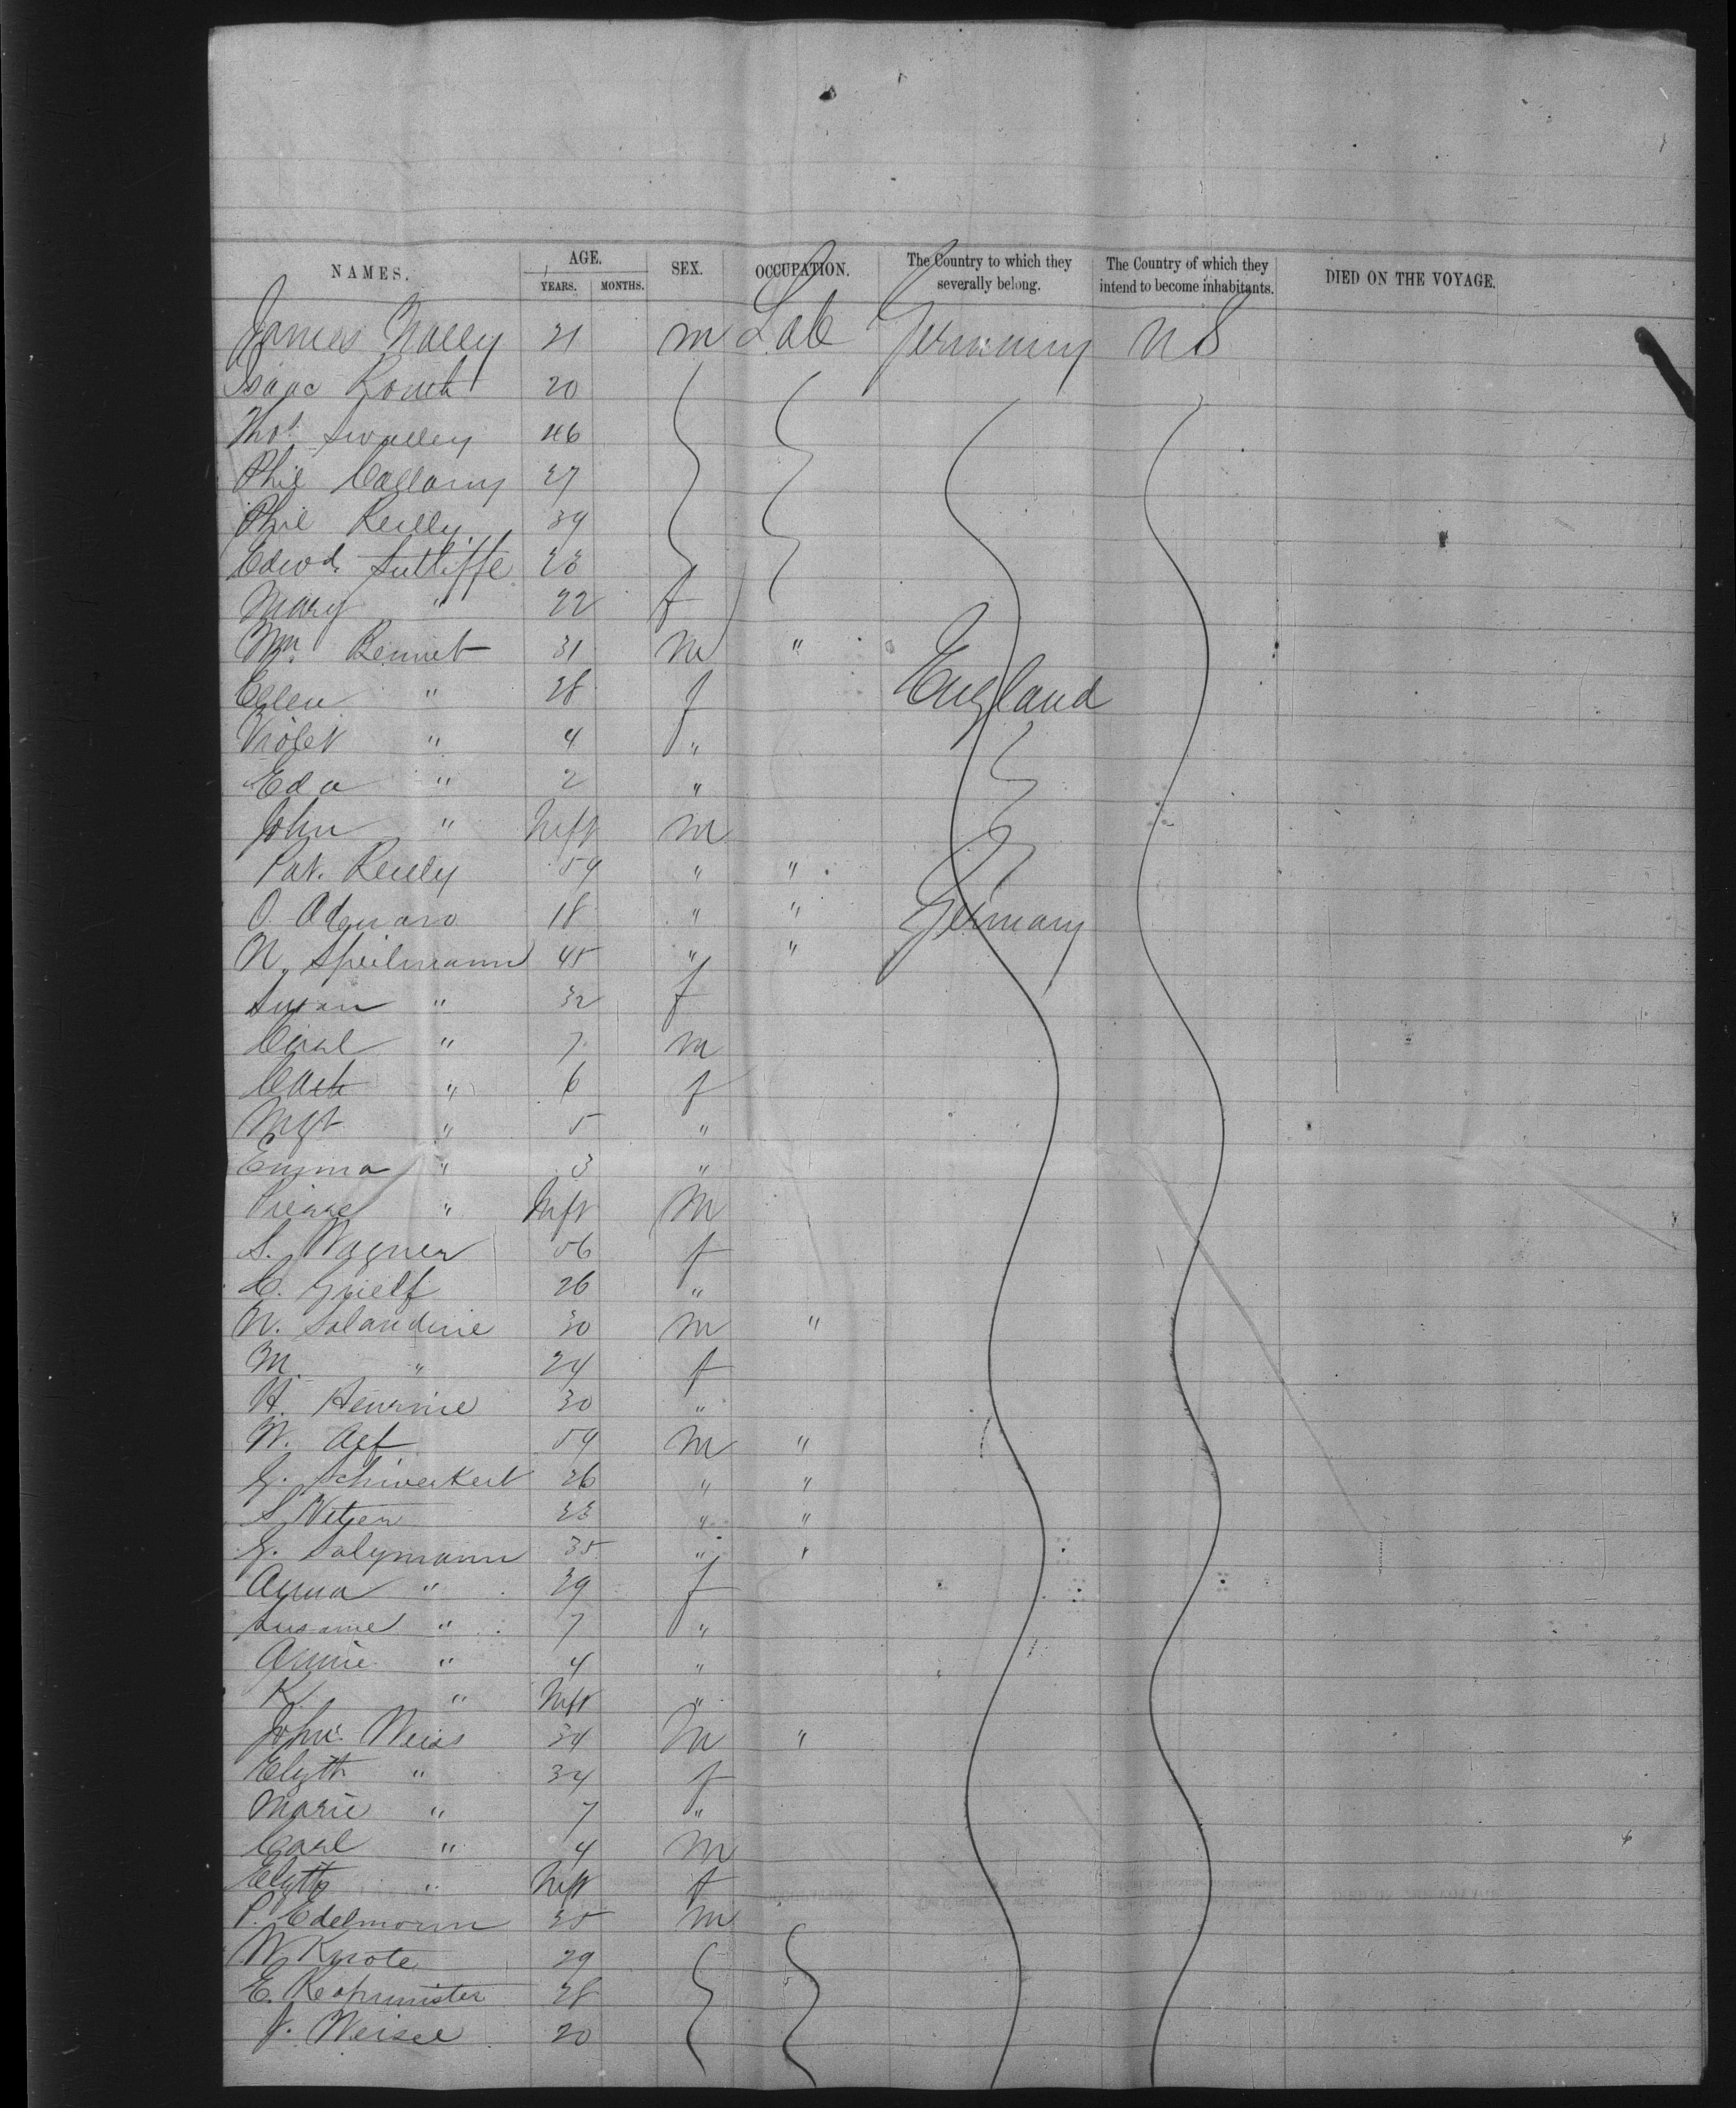 NAMES. AGE. SEX. OCCUPATION. The Country to which they severally belong. The Country of which they intend to become inhabitants. DIED ON THE VOYAGE.
YEARS. MONTHS.
James Nally 21 m Lab Germany US
Isaac 20
Thos. Swalley 46
Phil 27
Phil Reilly 39
Edwd. Sutliffe 23
Mary " 22 f
Wm. Bennet 31 m "
Ellen " 28 f England
Violet " 4 "
Eda " 2 "
John " Inft m
Pat. Reilly 59 " "
O. 18 " " Germany
N. Speilmann 45 " "
Susan " 32 f
Carl " 7 m
Cath " 6 f
Mgt " 5 "
Emma " 3 "
Pierre " Inft m
S. Wagner 56 f
C. Grielf 26 "
N. Salandine 30 m "
M. " 24 f
H. Henrine 30 "
W. Alf 59 m "
G. Schweikert 26 " "
S. Wetzen 23 " "
G. Salzmann 35 " "
Anna " 29 f
Susanne " 7 "
Annie " 4 "
K. " Inft "
John Weiss 34 m "
Elizth " 34 f
Marie " 7 "
Carl " 4 m
Elizth " Inft f
P. Edelmann 25 m
W. Knote 29
E. 28
J. Weisel 20